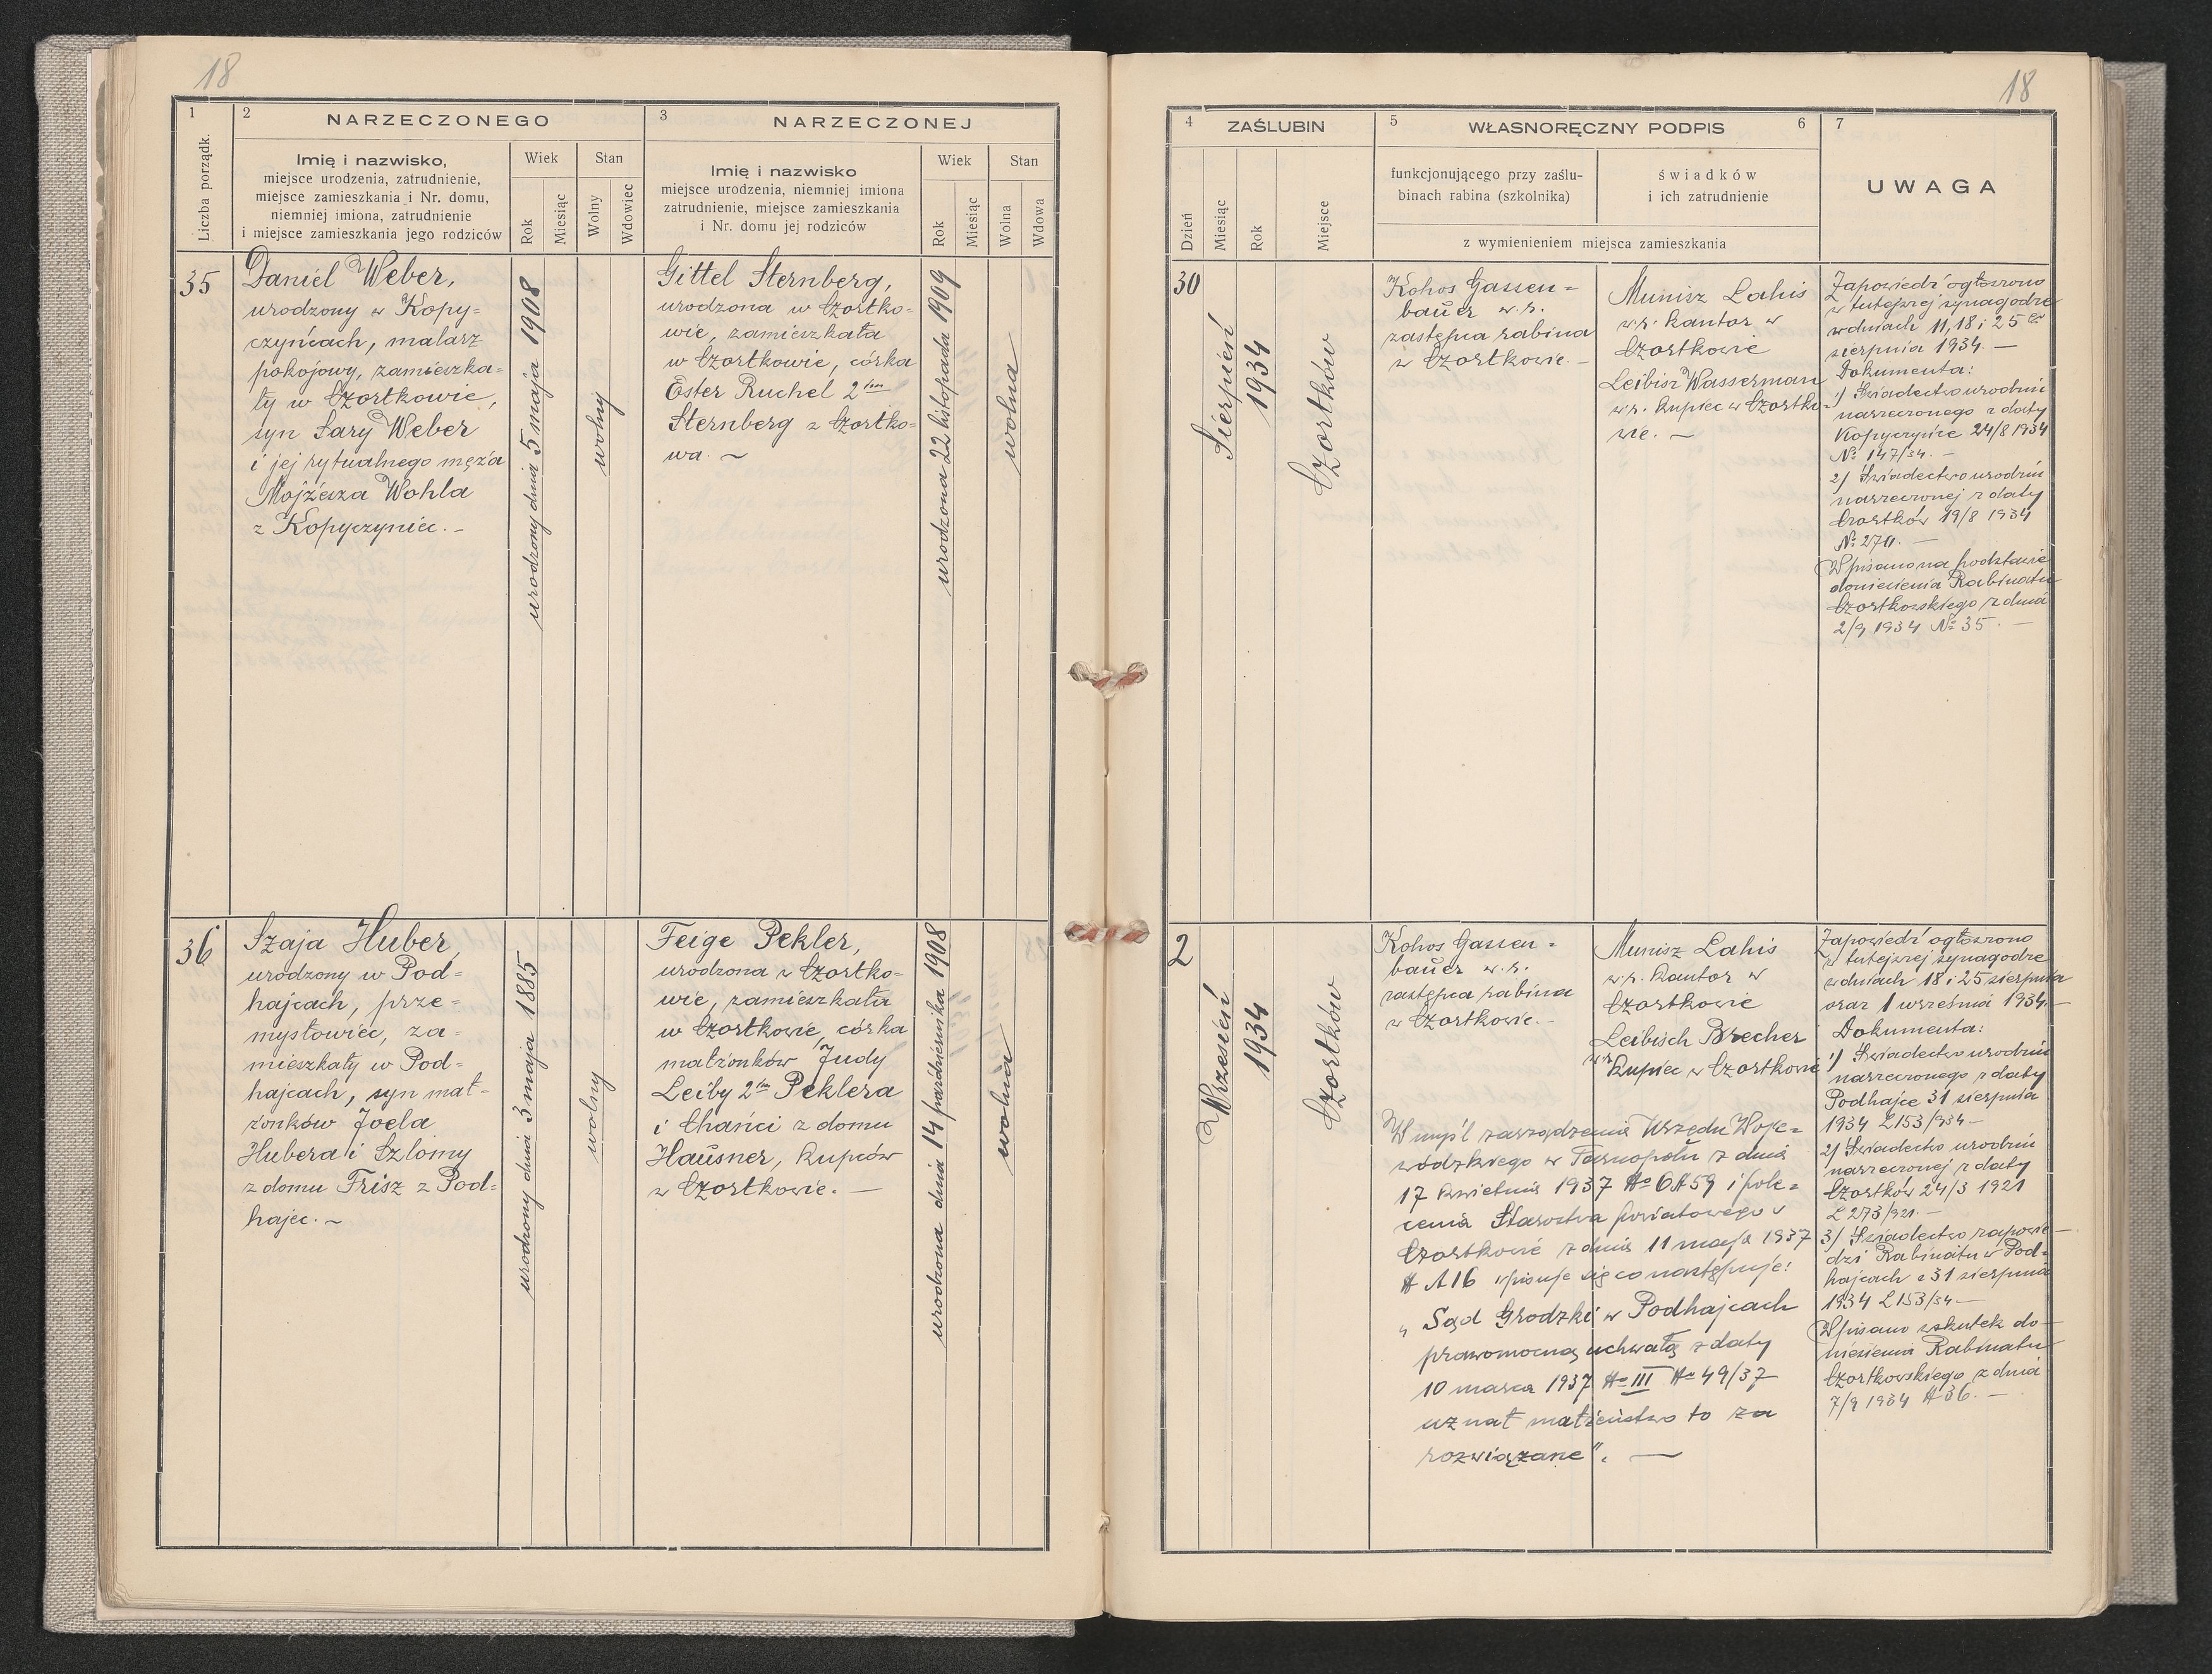 18
1
Liczba porządk.
2
NARZECZONEGO
Imię i nazwisko,
miejsce urodzenia, zatrudnienie,
miejsce zamieszkania i Nr. domu,
niemniej imiona, zatrudnienie
i miejsce zamieszkania jego rodziców
Wiek
Rok
Miesiąc
Stan
Wolny
Wdowiec
3
NARZECZONEJ
Imię i nazwisko
miejsce urodzenia, niemniej imiona
zatrudnienie, miejsce zamieszkania
i Nr. domu jej rodziców
Wiek
Rok
Miesiąc
Stan
Wolna
Wdowa
35
Daniel Weber,
urodzony w Kopy=
czyńcach, malarz
pokojowy, zamieszka=
ły w Czortkowie,
syn Sary Weber
i jej rytualnego męża
Mojżesza Wohla
z Kopyczyniec.-
urodzony dnia 5 maja 1908
wolny
Gittel Sternberg,
urodzona w Czortko=
wie, zamieszkała
w Czortkowie, córka
Ester Ruchel 2im
Sternberg z Czortko=
wa. ~
urodzona 22 listopada 1909
wolna
36
Szaja Huber,
urodzony w Pod=
hajcach, prze=
mysłowiec, za=
mieszkały w Pod=
hajcach, syn mał=
żonków Joela
Hubera i Szlomy
z domu Frisz z Pod=
hajec. ~
urodzony dnia 3 maja 1885
wolny
Feige Pekler,
urodzona w Czortko=
wie, zamieszkała
w Czortkowie, córka
małżonków Judy
Leiby 2im Peklera
i Chańci z domu
Hausner, kupców
w Czortkowie. —
urodzona dnia 14 października 1908
wolna
18
4
ZAŚLUBIN
Dzień
Miesiąc
Rok
Miejsce
5
WŁASNORĘCZNY PODPIS
6
funkcjonującego przy zaślu-
binach rabina (szkolnika)
świadków
i ich zatrudnienie
z wymienieniem miejsca zamieszkania
7
UWAGA
30
Sierpień
1934
Czortków
Kohos Gassen=
bauer w.r.
zastępca rabina
w Czortkowie.-
Munisz Lahis
w.r. kantor w
Czortkowie
Leibisz Wasserman
w.r. kupiec w Czortko-
wie. ~
Zapowiedź ogłoszono
w tutejszej synagodze
w dniach 11, 18 i 25
sierpnia 1934. —
Dokumenta:
1) Świadectwo urodzin
narzeczonego z daty
Kopyczyńce 24/8 1934
№ 147/34. -
2) Świadectwo urodzin
narzeczonej z daty
Czortków 19/8 1934
№ 270. —
Wpisano na podstawie
doniesienia Rabinatu
Czortkowskiego z dnia
2/9 1934 № 35. —
2
Wrzesień
1934
Czortków
Kohos Gassen=
bauer w.r.
zastępca rabina
w Czortkowie.-
Munisz Lahis
w.r. kantor w
Czortkowie
Leibisch Brecher
w.r. kupiec w Czortkowie
W myśl zarządzenia Urzędu Woje=
wódzkiego w Tarnopolu z dnia
17 kwietnia 1937 № 6A59 i pole=
cenia Starostwa powiatowego w
Czortkowie z dnia 11 maja 1937
№ A16 wpisuje się co następuje:
„Sąd Grodzki w Podhajcach
prawomocną uchwałą z daty
10 marca 1937 № III № 49/37
uznał małżeństwo to za
rozwiązane". —
Zapowiedź ogłoszono
w tutejszej synagodze
w dniach 18 i 25 sierpnia
oraz 1 września 1934.—
Dokumenta:
1) Świadectwo urodzin
narzeczonego z daty
Podhajce 31 sierpnia
1934 L153/934 —
2) Świadectwo urodzin
narzeczonej z daty
Czortków 24/3 1921
L 273/921. —
3) Świadectwo zapowie-
dzi Rabinatu w Pod=
hajcach z 31 sierpnia
1934 L153/34 —
Wpisano wskutek do-
niesienia Rabinatu
Czortkowskiego z dnia
7/9 1934 № 36. —